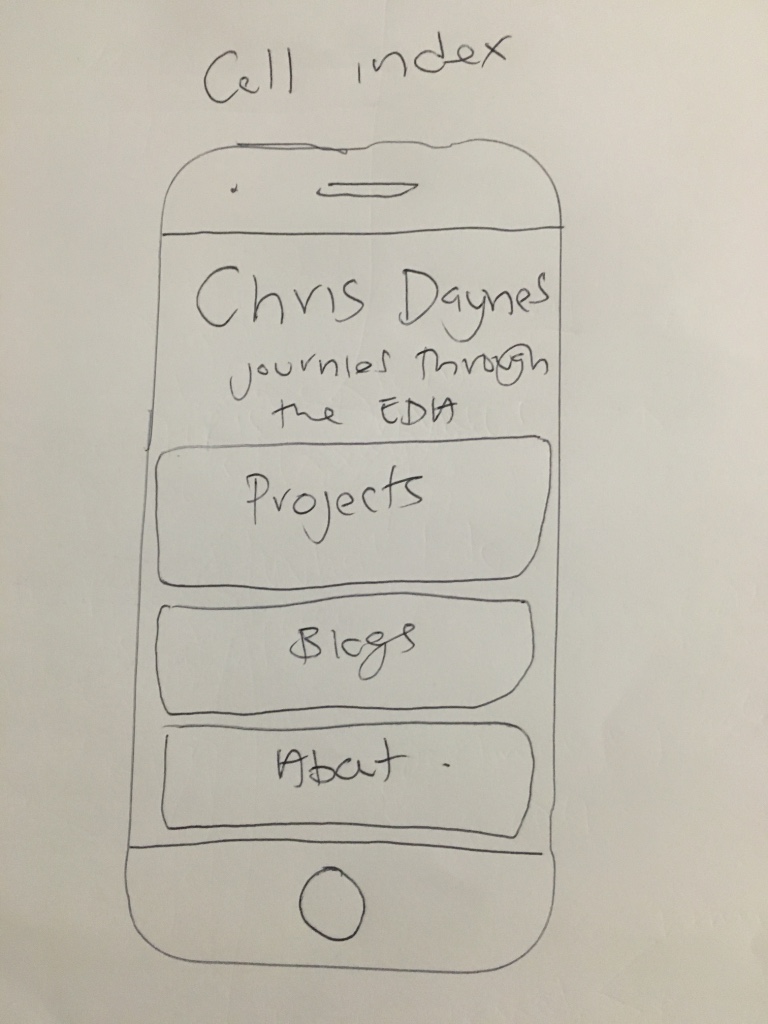 Cell index
Chris Daynes
journies through
the EDA
Projects
Blogs
About